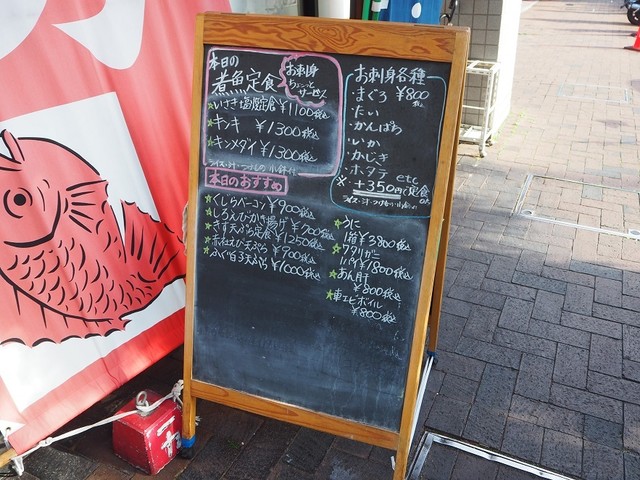 本日の
煮魚定食
お刺身
ちょこっと
サービス
いさき塩焼定食 ¥1100税込
キンキ ¥1300税込
キンメダイ ¥1300税込
ライス・汁・つけもの・小鉢付
お刺身各種
・まぐろ ¥800税込
・たい
・かんぱち
・いか
・かじき
・ホタテ etc
※ +350円で定食
本日のおすすめ
くじらベーコン ¥900税込
しろえびかき揚げ ¥700税込
きす天ぷら定食 ¥1250税込
赤ねぶか天ぷら ¥900税込
ふぐ白子天ぷら ¥1000税込
うに
1箱 ¥3800税込
ワタリガニ
1パイ ¥1800税込
あん肝
¥800税込
車エビボイル
¥800税込